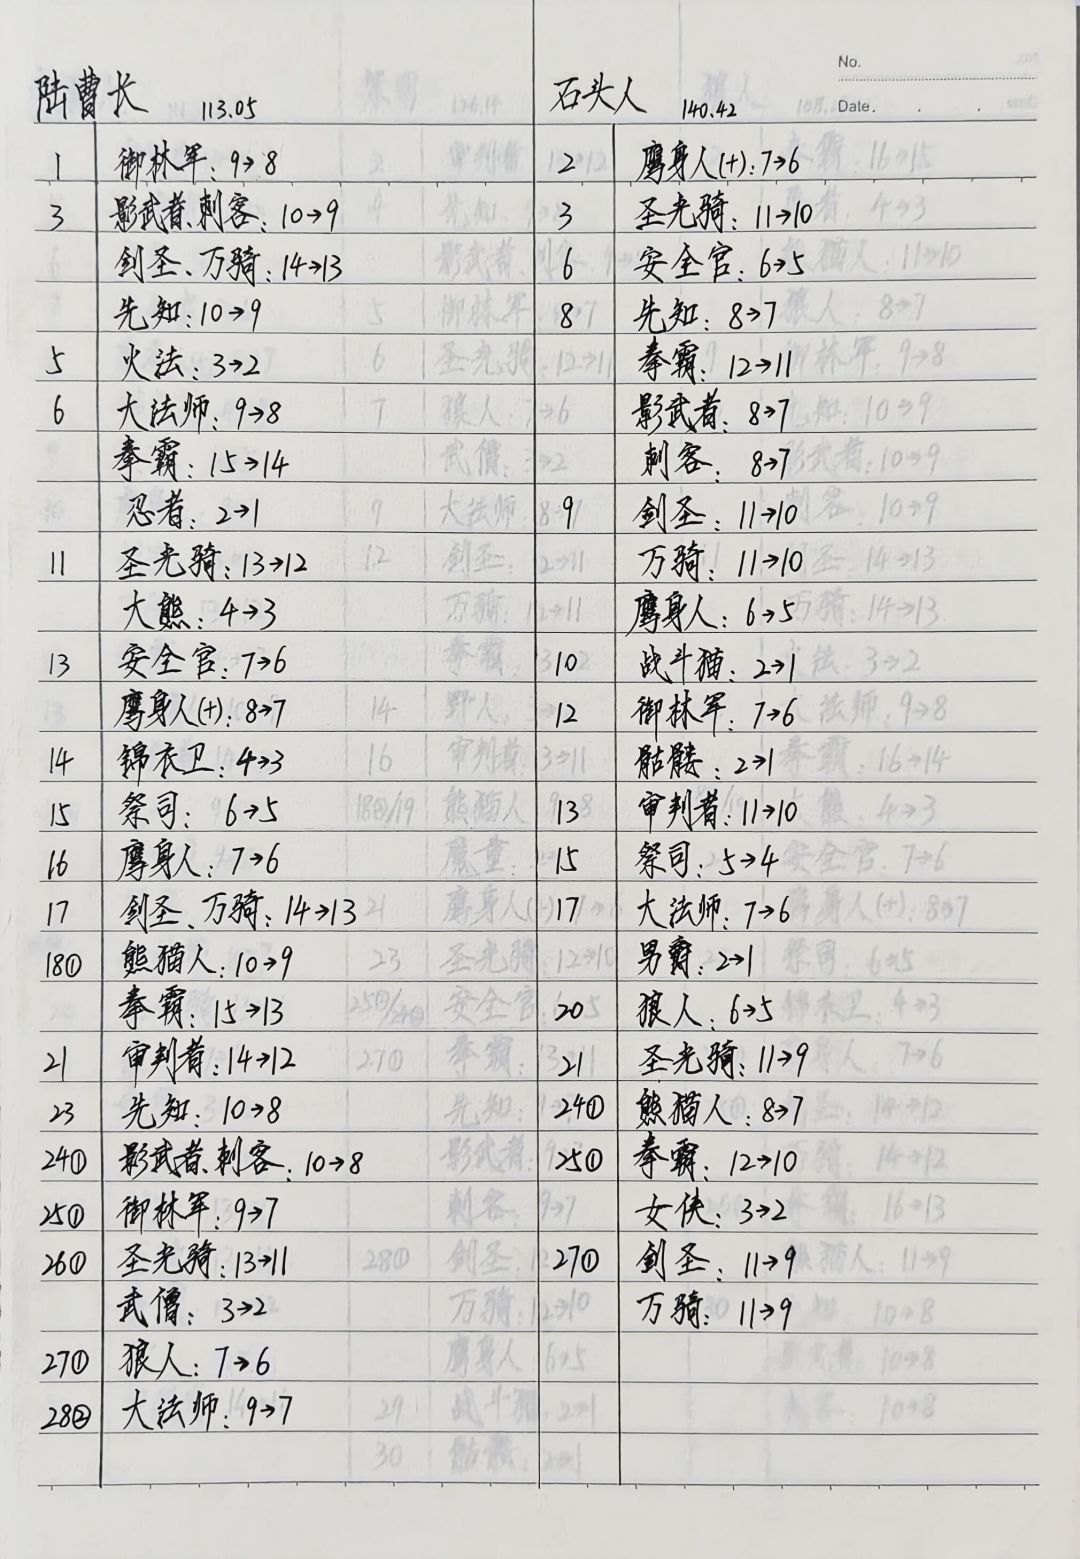 No.
Date.
陆曹长 113.05
1 御林军: 9→8
3 影武者、刺客: 10→9
剑圣、万骑: 14→13
先知: 10→9
5 火法: 3→2
6 大法师: 9→8
拳霸: 15→14
忍者: 2→1
11 圣光骑: 13→12
大熊: 4→3
13 安全官: 7→6
鹰身人(+): 8→7
14 锦衣卫: 4→3
15 祭司: 6→5
16 鹰身人: 7→6
17 剑圣、万骑: 14→13
18① 熊猫人: 10→9
拳霸: 15→13
21 审判者: 14→12
23 先知: 10→8
24① 影武者、刺客: 10→8
25① 御林军: 9→7
26① 圣光骑: 13→11
武僧: 3→2
27① 狼人: 7→6
28② 大法师: 9→7
石头人 140.42
2 鹰身人(+): 7→6
3 圣光骑: 11→10
6 安全官: 6→5
8 先知: 8→7
拳霸: 12→11
影武者: 8→7
刺客: 8→7
9 剑圣: 11→10
万骑: 11→10
鹰身人: 6→5
10 战斗猫: 2→1
12 御林军: 7→6
骷髅: 2→1
13 审判者: 11→10
15 祭司: 5→4
17 大法师: 7→6
男爵: 2→1
20 狼人: 6→5
21 圣光骑: 11→9
24① 熊猫人: 8→7
25① 拳霸: 12→10
女侠: 3→2
27① 剑圣: 11→9
万骑: 11→9